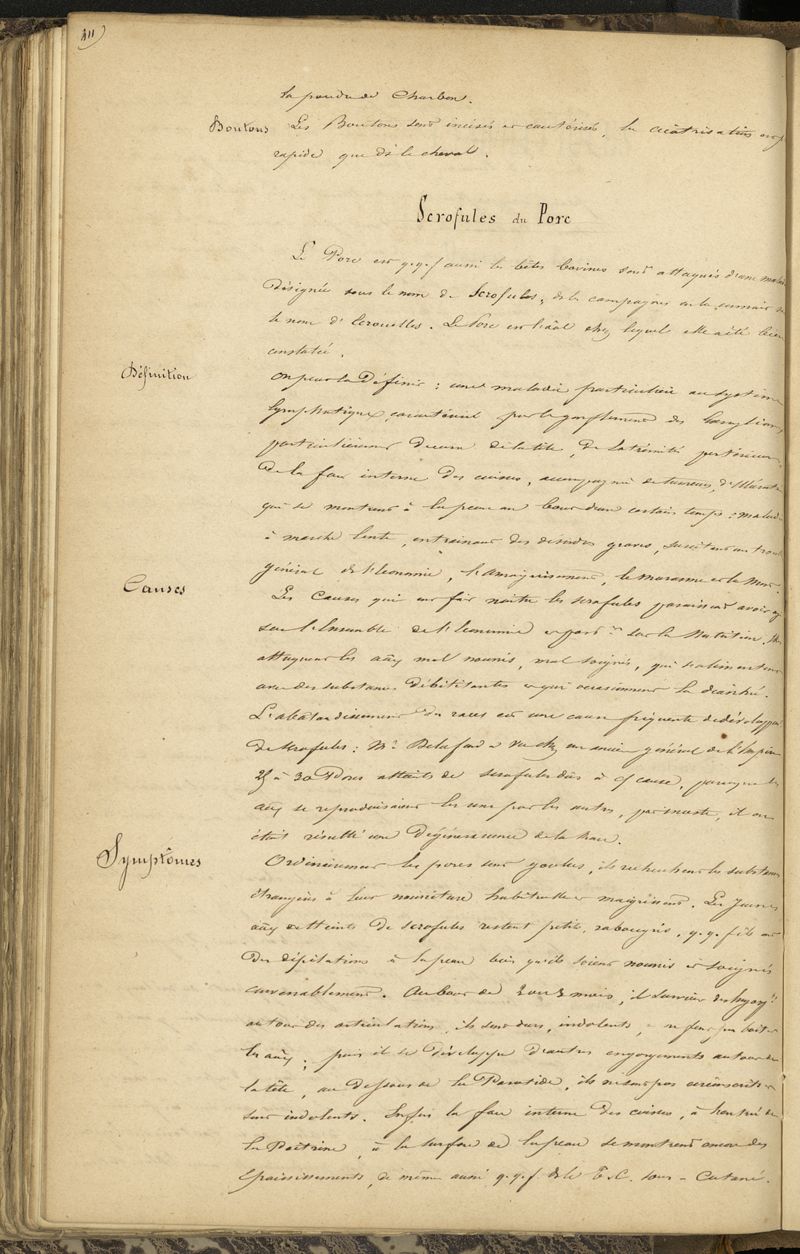 411
la poudre de Charbon.
Boutons Les Boutons sont incisés et cautérisés, la cicatrisation est
rapide que ds le cheval.
Scrofules du Porc
Le Porc et q.q.f aussi les bêtes bovines sont attaqués d'une malad
Désignée sous le nom de Scrofules, ds les campagnes on la connait s
le nom d'Ecrouelles. Le Porc est l'aãl chez lequel elle a été bien
constatée.
Définition On peut la Définir : une maladie particulière au système
lymphatique, caractérisée par le gonflement des Ganglions
particulièrement de la tête, de l'extrémité postérieure,
De la face interne des cuisses, accompagné de tumeurs, d'Ulcérat
qui se montrent à la peau au bout d'un certain temps : maladie
à marche lente, entrainant des désordes graves, suscitant un troub
général de l'économie, l'amaigrissement, le marasme et la Mort.
Causes Les Causes qui en font naitre les scrofules paraissent avoir ag
sur l'Ensemble de l'économie et part.nt sur la Nutrition. Elles
attaquent les aãx mal nourris, mal soignés, qui s'alimentent
avec des substances débilitantes et qui occasionnent la diarrhée.
L'abâtardissement des races est une cause fréquente de développem
de scrofules : Mr. Delafond a vu chez un ancien général de l'Empire
25 à 30 Porcs atteints de scrofules dûs à cette cause, parceque les
aãx se reproduisaient les uns par les autres, par suite, il en
était résulté une Dégénérescence de la race.
Symptômes Ordinairement les porcs sont goulus, ils recherchent les substances
étrangères à leur nourriture habituelle et maigrissent. Les Jeunes
aãx atteints de scrofules restent petits, rabougris, q.q.f ils ont
Des dépilations à la peau bien qu'ils soient nourris et soignés
convenablement. Au bout de 2 ou 3 mois, il survient des engorg.ts
autour des articulations, ils sont durs, indolents, et font peu boiter
les aãx ; puis il se développe d'autres engorgements autour de
la tête, au Dessous de la Parotide, ils ne sont pas circonscrits et
sont indolents. Enfin la face interne des cuisses, à l'entrée de
la Poitrine, à la surface de la peau se montrent encore des
épaississements, de même aussi q.q.f. ds le T.C. sous-Cutané.